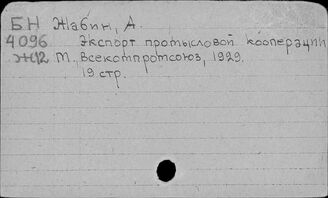 БН Жабин, А.
4096 Экспорт промысловой кооперации
Ж12 М., Всекопромсоюз, 1929.
19 стр.